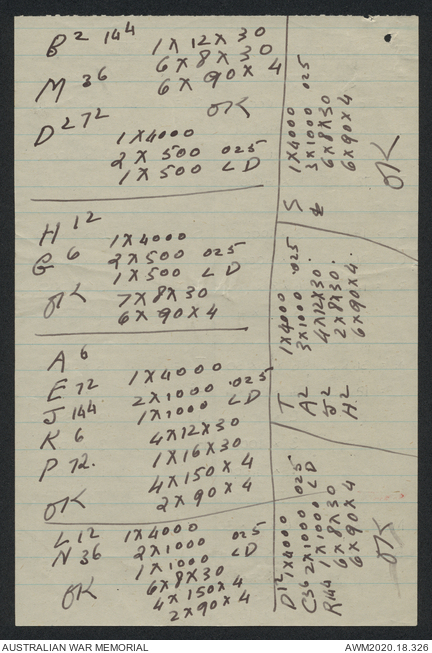 B² 144 1 X 12 X 30
6 X 8 X 30
M 36 6 X 90 X 4
OK
D² 72 1 X 4000
2 X 500 025
1 X 500 LD
H 12 1 X 4000
G 6 2 X 500 025
1 X 500 LD
OK 7 X 8 X 30
6 X 90 X 4
A 6
E 72 1 X 4000
J 144 2 X 1000 .025
K 6 1 X 1000 LD
P 72. 4 X 12 X 30
1 X 16 X 30
OK 4 X 150 X 4
2 X 90 X 4
L 12 1 X 4000
N 36 2 X 1000 025
1 X 1000 LD
OK 6 X 8 X 30
4 X 150 X 4
2 X 90 X 4
S 1 X 4000
3 X 1000 025
6 X 8 X 30
6 X 90 X 4
OK
T 1 X 4000
A² 3 X 1000 .025
J² 4 X 12 X 30.
H² 2 X 8 X 30.
6 X 90 X 4.
D¹² 1 X 4000
C36 2 X 1000 025
R144 1 X 1000 LD
6 X 8 X 30
6 X 90 X 4
OK
AUSTRALIAN WAR MEMORIAL AWM2020.18.326